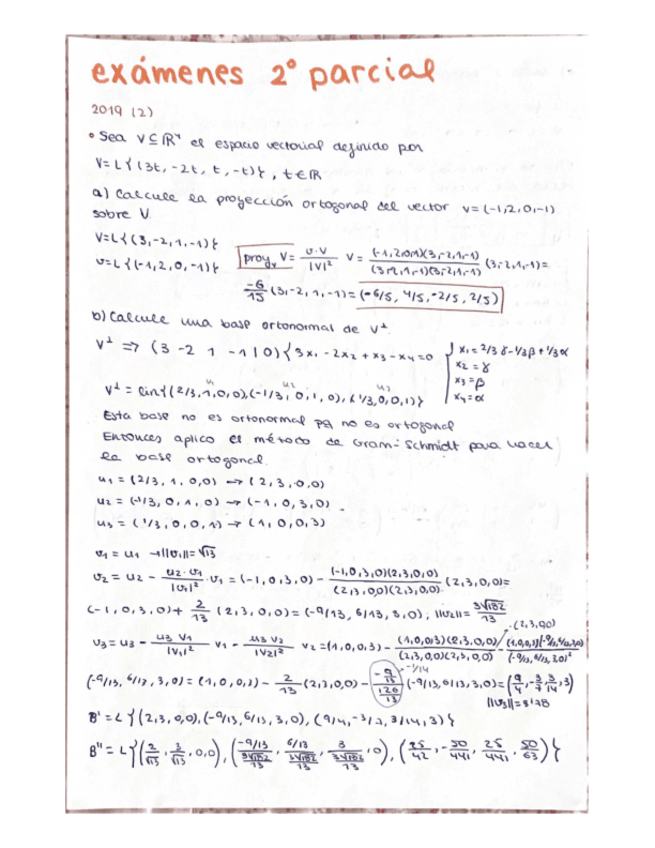 exámenes 2º parcial
2019 (2)
• Sea V⊆ℝ⁴ el espacio vectorial definido por
V=L{(3t, -2t, t, -t)}, t∈ℝ
a) Calcule la proyección ortogonal del vector v=(-1,2,0,-1)
sobre V.
V=L{(3,-2,1,-1)}
v=L{(-1,2,0,-1)} proyᵥ V= v·V/|V|² V = (-1,2,0,-1)(3,-2,1,-1)/(3,-2,1,-1)(3,-2,1,-1) (3,-2,1,-1)=
-6/15 (3,-2,1,-1)=(-6/5, 4/5, -2/5, 2/5)
b) Calcule una base ortonormal de V⊥.
V⊥ => (3 -2 1 -1|0){3x₁-2x₂+x₃-x₄=0 { x₁=2/3 γ-1/3β+1/3α
x₂=γ
x₃=β
x₄=α
u₁ u₂ u₃
V⊥ = lin{(2/3,1,0,0),(-1/3,0,1,0),(1/3,0,0,1)}
Esta base no es ortonormal pq no es ortogonal
Entonces aplico el método de Gram-Schmidt para hacer
la base ortogonal.
u₁ = (2/3, 1, 0,0) → (2,3,0,0)
u₂ = (-1/3, 0, 1, 0) → (-1,0,3,0)
u₃ = (1/3, 0, 0, 1) → (1,0,0,3)
v₁ = u₁ → ||v₁||=√13
v₂ = u₂ - u₂·v₁/|v₁|² ·v₁ = (-1,0,3,0) - (-1,0,3,0)(2,3,0,0)/(2,3,0,0)(2,3,0,0) (2,3,0,0)=
(-1,0,3,0)+ 2/13 (2,3,0,0)=(-9/13, 6/13, 3,0); ||v₂||= 3√182/13
·(2,3,0,0)
v₃=u₃ - u₃ v₁/|v₁|² v₁ - u₃ v₂/|v₂|² v₂=(1,0,0,3) - (1,0,0,3)(2,3,0,0)/(2,3,0,0)(2,3,0,0) - (1,0,0,3)(-9/13,6/13,3,0)/(-9/13,6/13,3,0)²
(-9/13, 6/13, 3,0)=(1,0,0,3) - 2/13 (2,3,0,0) - (-9/13)/(126/13) → -1/14 (-9/13,6/13,3,0)=(9/14, -3/7, 3/14, 3)
B'=L{(2,3,0,0),(-9/13,6/13,3,0),(9/14,-3/7,3/14,3)}
B''=L{(2/√13, 3/√13, 0,0), ((-9/13)/(3√182/13), (6/13)/(3√182/13), 3/(3√182/13), 0), (25/42, -50/441, 25/441, 50/63)}